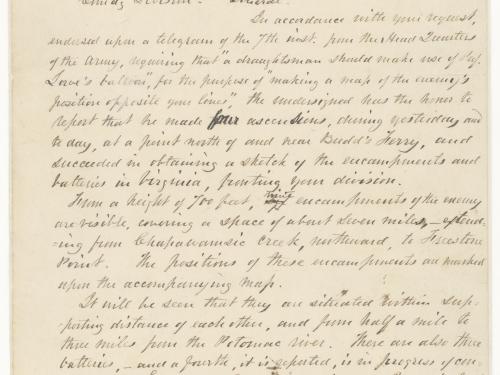 In accordance with your request,
endorsed upon a telegram of the 7th inst. from the Head Quarters
of the Army, requiring that "a draughtsman should make use of Prof.
Lowe's balloon", for the purpose of "making a map of the enemy's
position opposite your lines", the undersigned has the honor to
report that he made four ascensions, during yesterday and
to day, at a point north of and near Budd's Ferry, and
succeeded in obtaining a sketch of the encampments and
batteries in Virginia, fronting your division.
From a height of 700 feet, nine encampments of the enemy
are visible, covering a space of about seven miles, – extend-
-ing from Chapawamsic Creek, northward, to Freestone
Point. The positions of these encampments are marked
upon the accompanying map.
It will be seen that they are situated within sup-
porting distance of each other, and from half a mile to
three miles from the Potomac river. There are also three
batteries, – and a fourth, it is reported, is in progress of con-